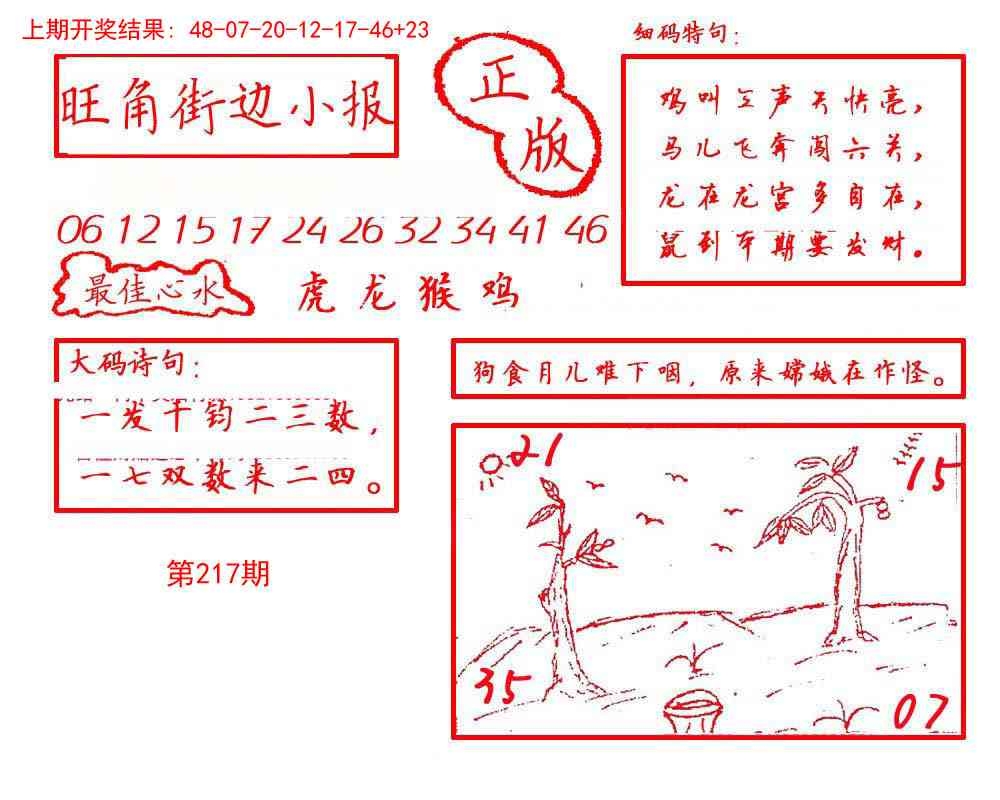 上期开奖结果: 48-07-20-12-17-46+23
旺角街边小报
正
版
细码特句:
鸡叫三声天快亮,
马儿飞奔闯六关,
龙在龙宫多自在,
鼠到本期要发财。
06 12 15 17 24 26 32 34 41 46
最佳心水
虎龙猴鸡
大码诗句:
一发千钧二三数,
一七双数来二四。
狗食月儿难下咽, 原来嫦娥在作怪。
21
15
35
07
第217期